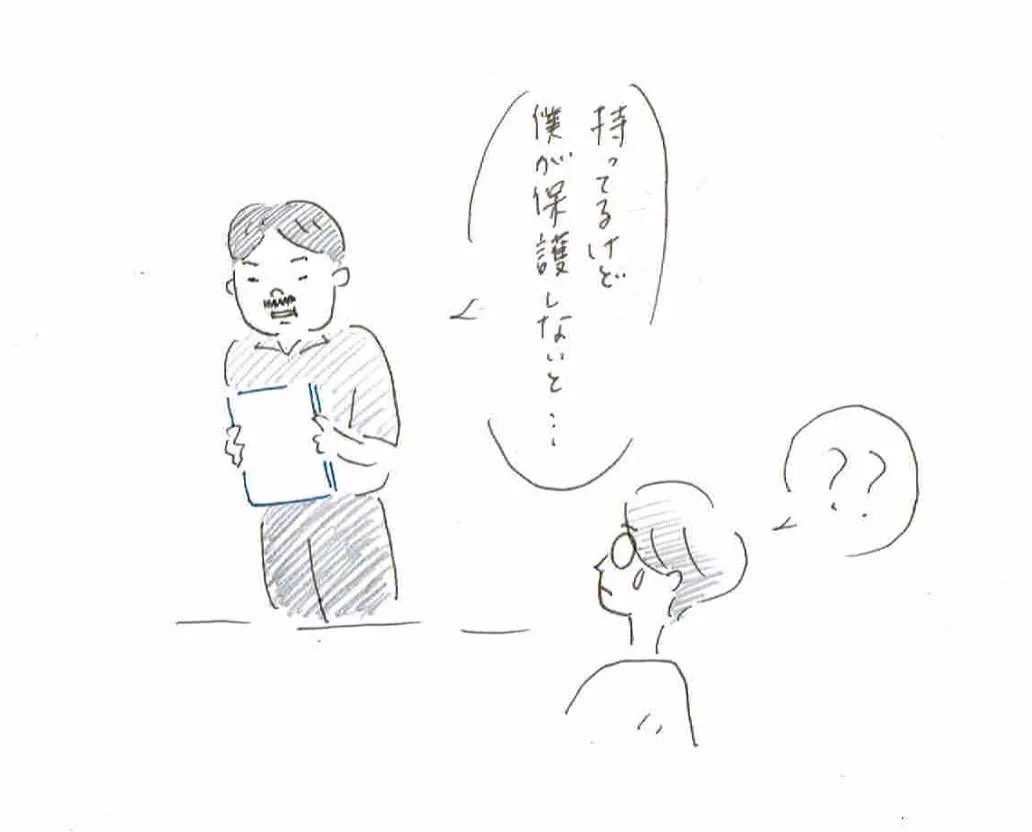 持ってるけど
僕が保護しないと…
??